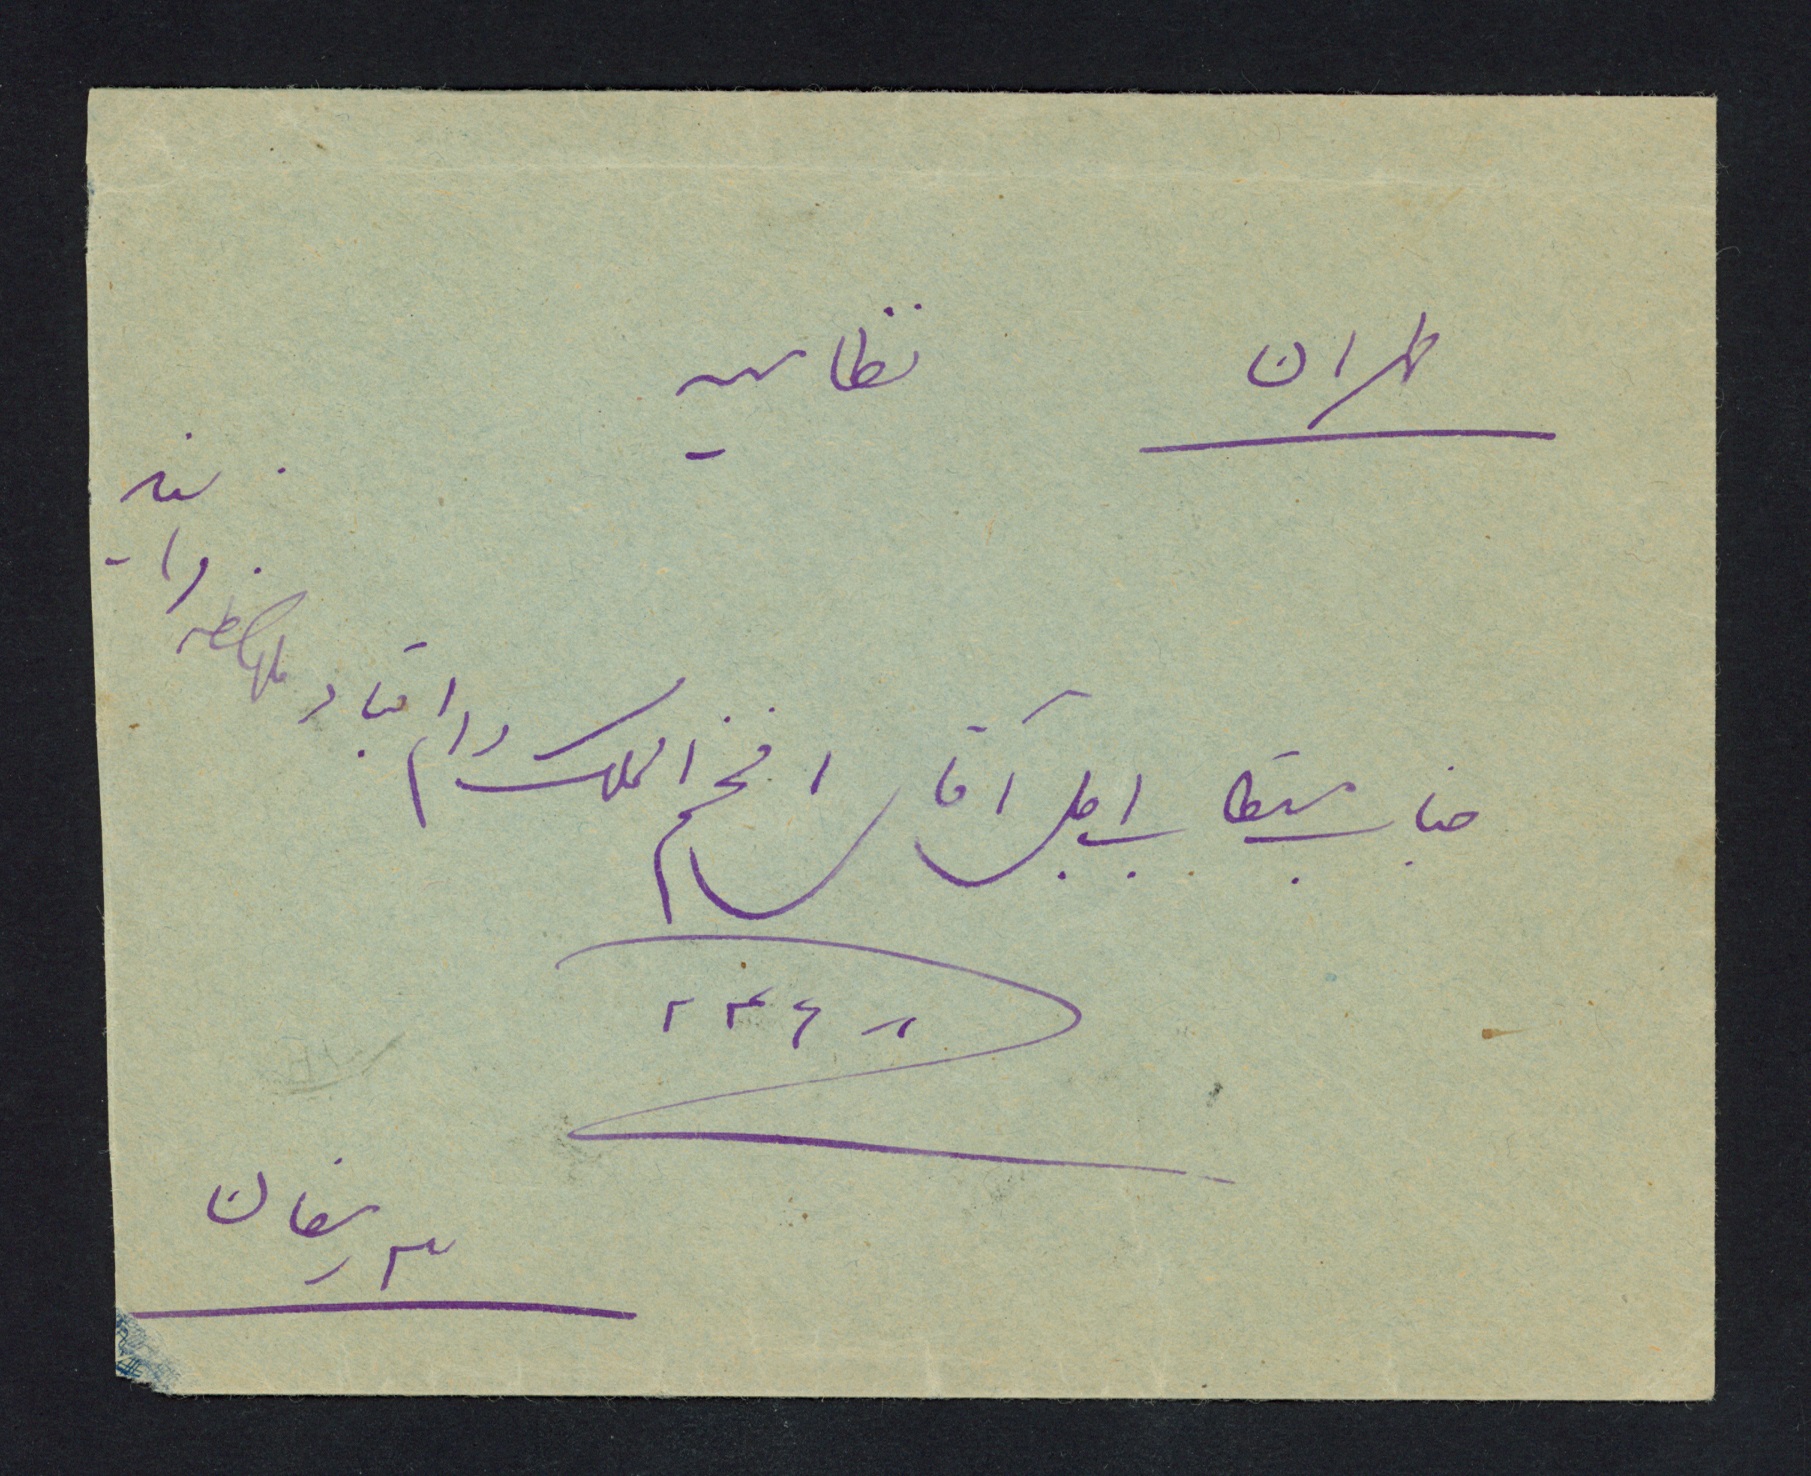 طهران نظامیه
جناب مستطاب اجل آقای افخم الملک دام اقباله ملاحظه فرمایند
۲۴۶۸
۳ رمضان